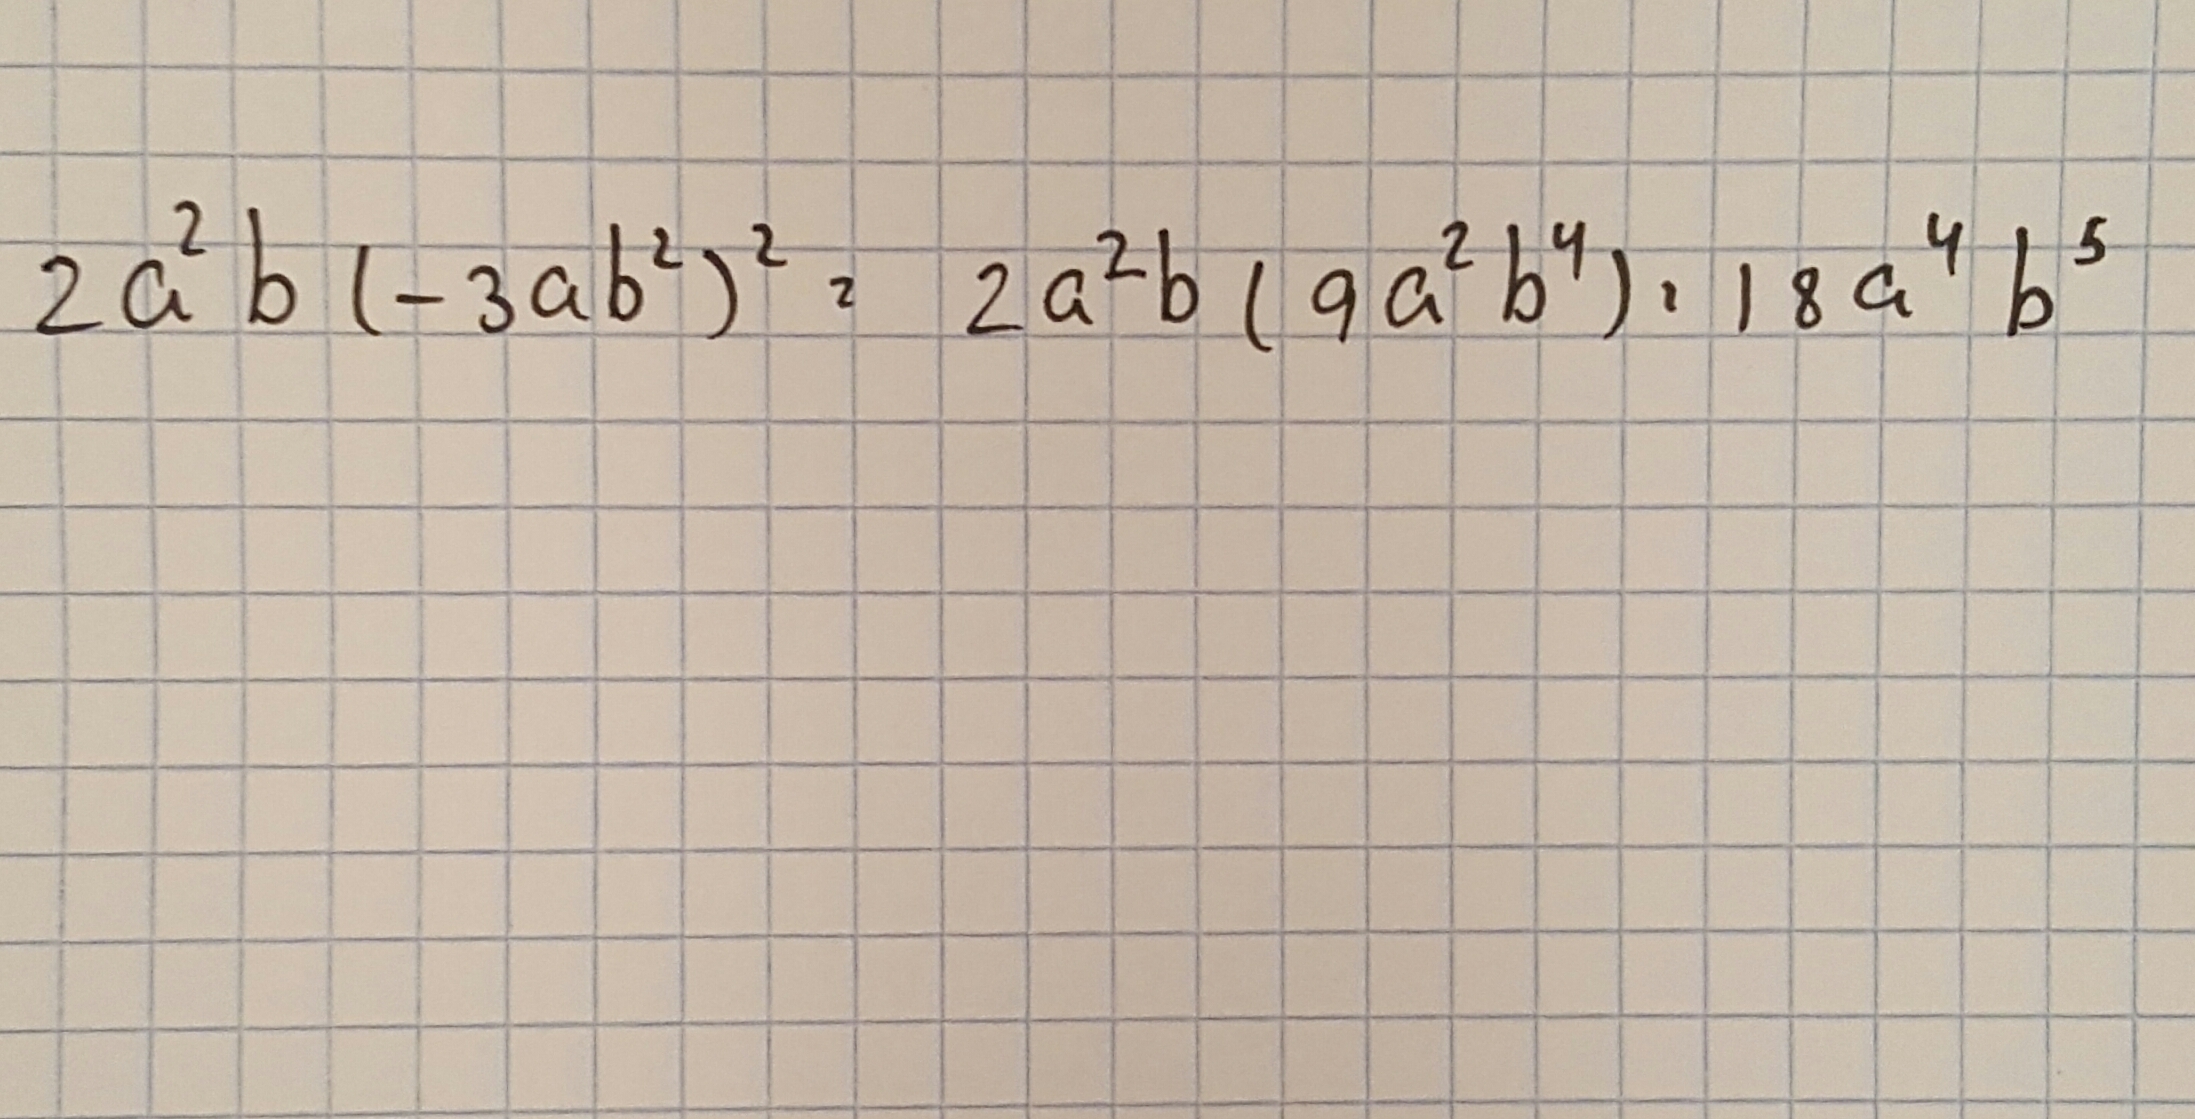 2a²b(-3ab²)² = 2a²b(9a²b⁴) = 18a⁴b⁵